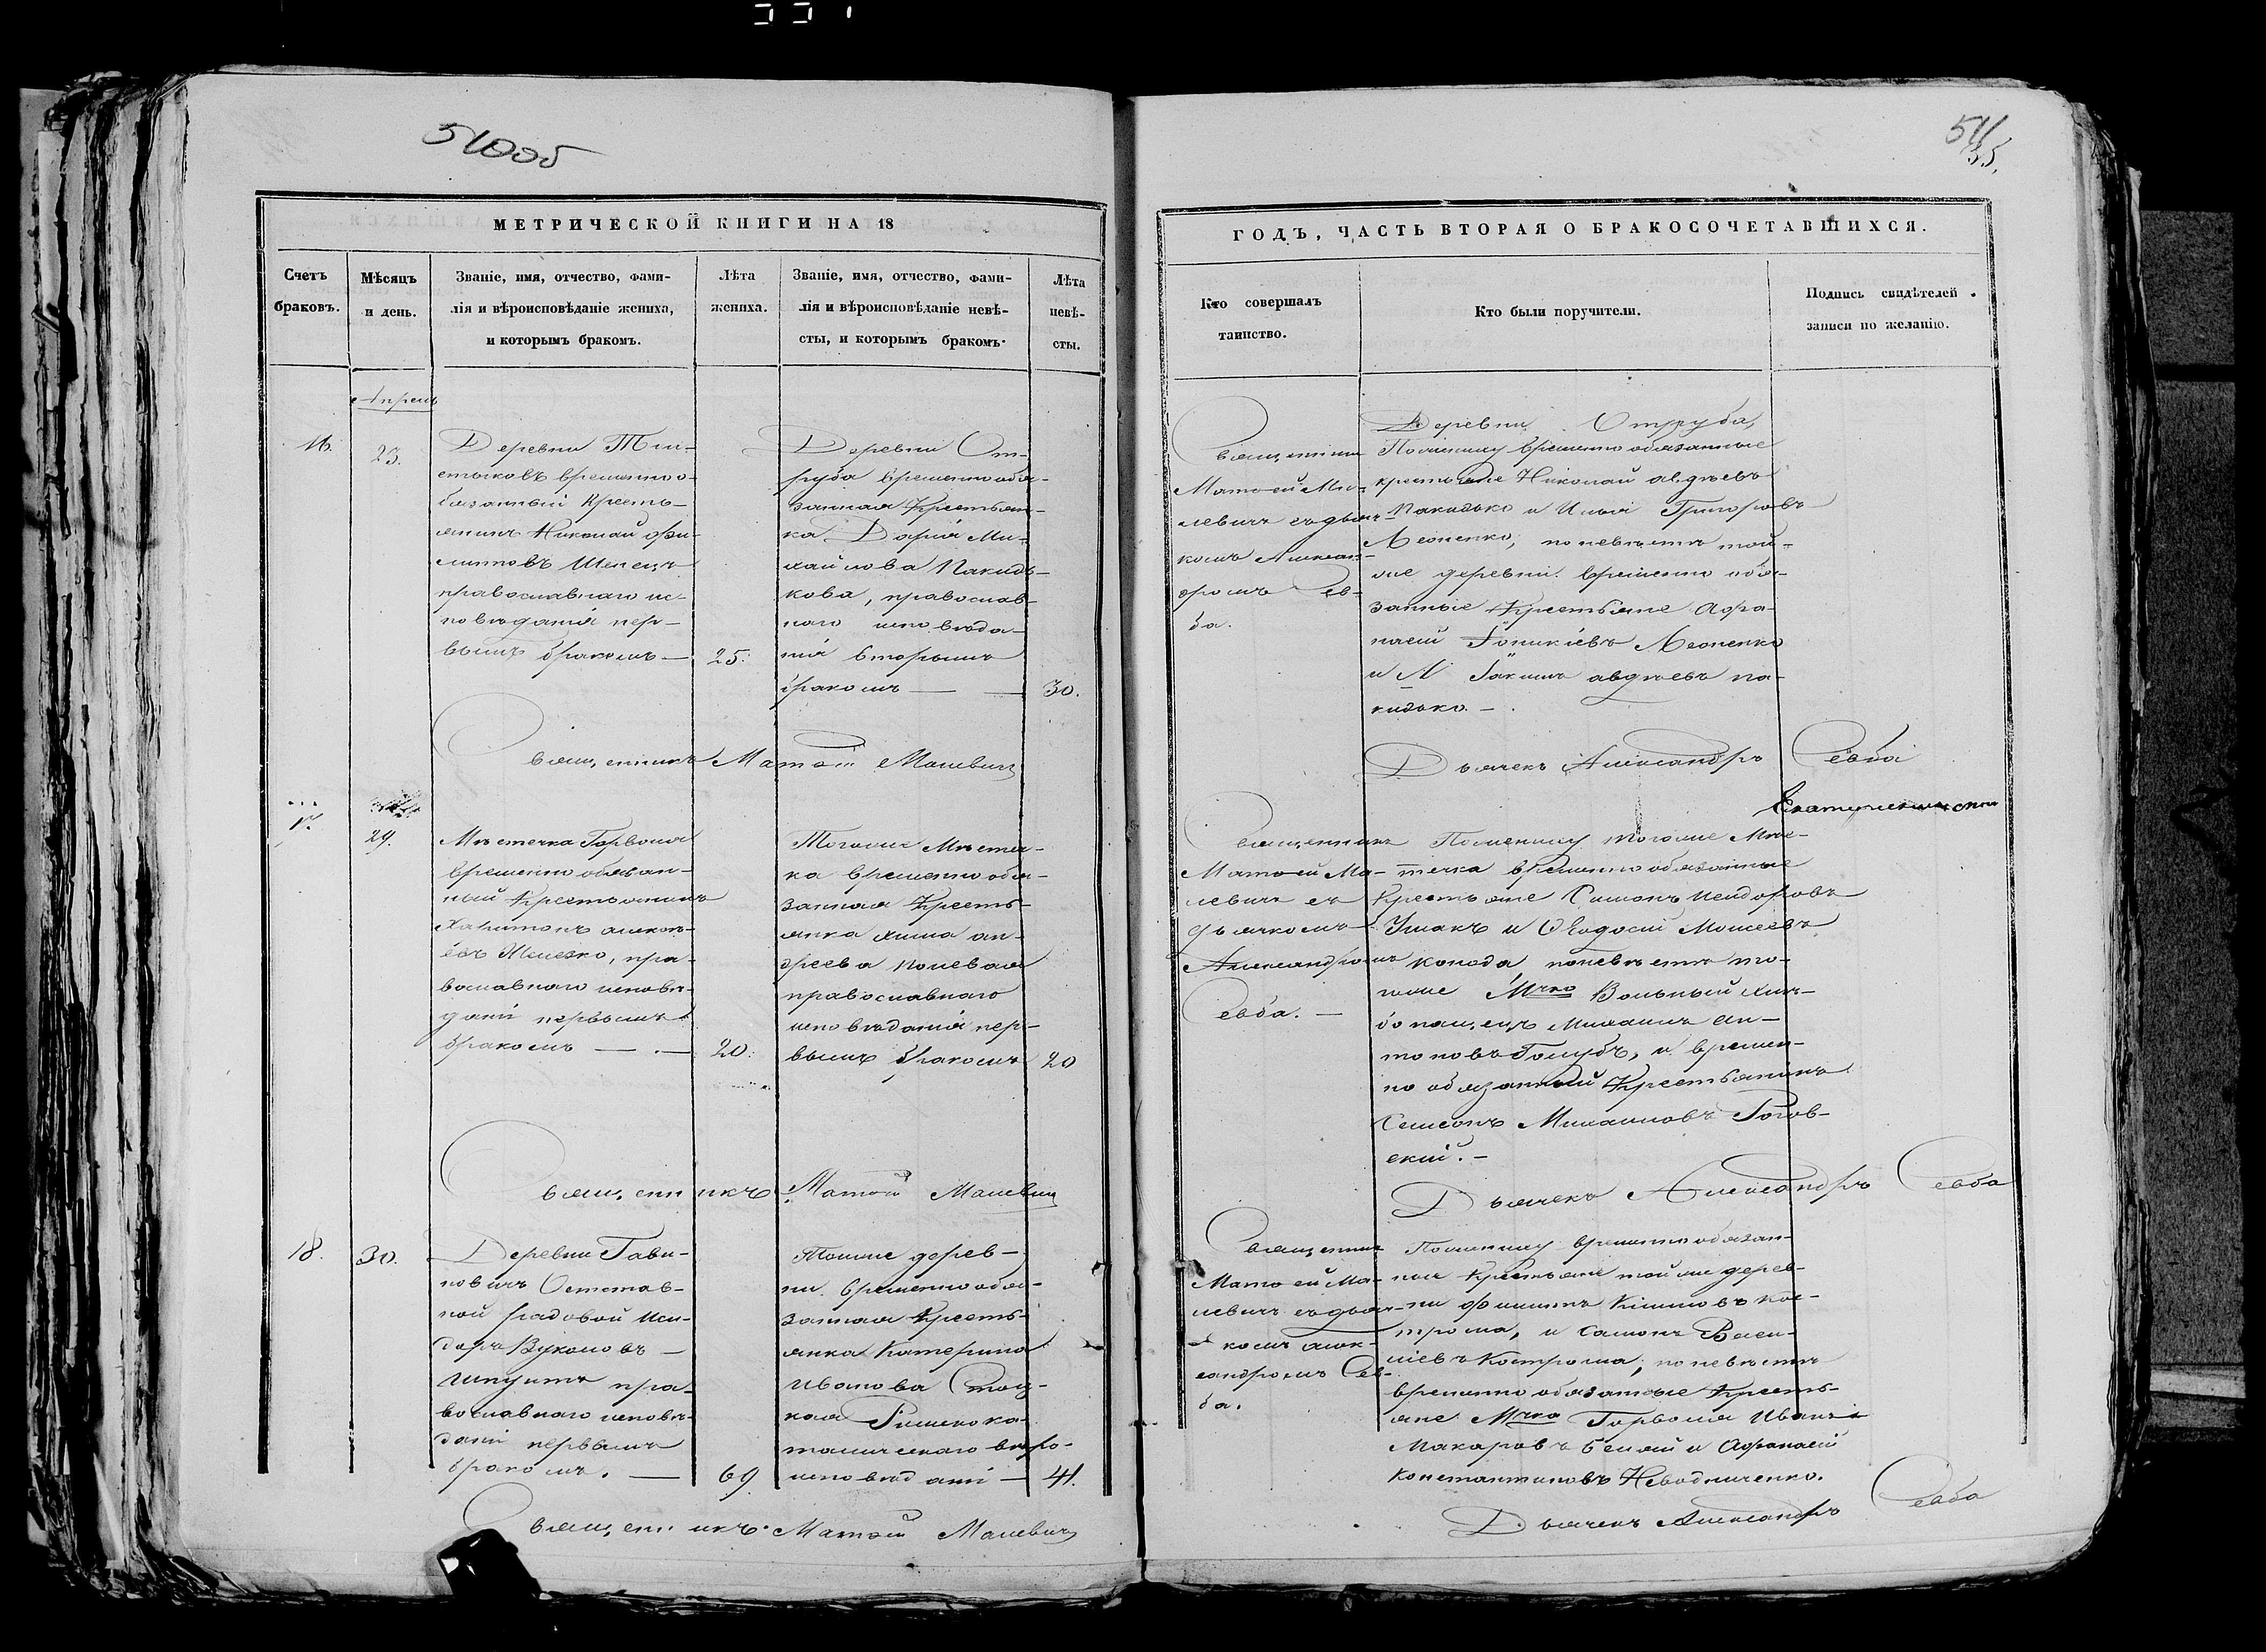 510об
МЕТРИЧЕСКОЙ КНИГИ НА 18
Счетъ браковъ.
Мѣсяцъ и день.
Званіе, имя, отчество, фами-
лія и вѣроисповѣданіе жениха,
и которымъ бракомъ.
Лѣта
жениха.
Званіе, имя, отчество, фами-
лія и вѣроисповѣданіе невѣ-
сты, и которымъ бракомъ.
Лѣта
невѣ-
сты.
Апрель
16.
23.
Деревни
временно о-
бязанный Кресть-
янинъ Николай Фи-
липповъ Шепецъ
православнаго ис-
повѣданія пер-
вымъ бракомъ —
25.
Деревни От-
руба временно обя-
занная Крестьян-
ка Дарія Ми-
хайлова Накидь-
кова, православ-
наго исповѣда-
нія вторымъ
бракомъ —
30.
Священникъ Матѳей Малевичъ
17.
29.
Мѣстечка Горволя
временно обязан-
ный Крестьянинъ
Харитонъ Алексѣ-
евъ пра-
вославнаго исповѣ-
данія первымъ
бракомъ —
20.
Тогоже Мѣстеч-
ка временно обя-
занная Кресть-
янка Хима Ан-
дреева Полевая
православнаго
исповѣданія пер-
вымъ бракомъ
20
Священникъ Матѳей Малевичъ
18.
30.
Деревни Гави-
новичъ Отстав-
ной рядовой Иси-
доръ Вуколовъ
пра-
вославнаго исповѣ-
данія первымъ
бракомъ. —
69
Тойже дерев-
ни временно обя-
занная Кресть-
янка Катерина
Иванова
кая Римскока-
толическаго вѣро-
исповѣданія —
41.
Священникъ Матѳей Малевичъ
511
35.
ГОДЪ, ЧАСТЬ ВТОРАЯ О БРАКОСОЧЕТАВШИХСЯ.
Кто совершалъ
таинство.
Кто были поручители.
Подпись свидѣтелей
записи по желанію.
Священникъ
Матѳей Ма-
левичъ съ дьяч-
комъ Алексан-
дромъ Сев-
ба.
Деревни Отруба,
По жениху временно обязанные
крестьяне Николай Авдѣевъ
Накидько и Илья Григоровъ
Леоненко, по невѣстѣ той-
же деревни временно обя-
занные Крестьяне Афа-
насій Іоникіевъ Леоненко
и Іакимъ Авдѣевъ На-
кидько. —
Дьячекъ Александръ Севба
Священникъ
Матѳей Ма-
левичъ съ
дьячкомъ
Александромъ
Севба. —
По жениху тогоже Мѣс-
течка временно обязанные
Крестьяне Симонъ Исидоровъ
Ушакъ и Ѳеодосій Моисеевъ
Конода по невѣстѣ то-
гоже Мчко Вольный хлѣ-
бопашецъ Михаилъ Ан-
тоновъ Голубъ, и времен-
но обязанный Крестьянинъ
Семеонъ Михаиловъ Гогов-
скій. —
Дьячекъ Александръ Севба
Священникъ
Матѳей Ма-
левичъ съ дьяч-
комъ Алек-
сандромъ Сев-
ба.
По жениху временно обязан-
ные Крестьяне тойже дерев-
ни Филиппъ Климовъ Кос-
трома, и Самонъ Васи-
ліевъ Кострома, по невѣстѣ
временно обязанные Кресть-
яне Мчка Горволя Иванъ
Макаровъ Белый и Афанасій
Константиновъ Неводниченко.
Дьячекъ Александръ Севба